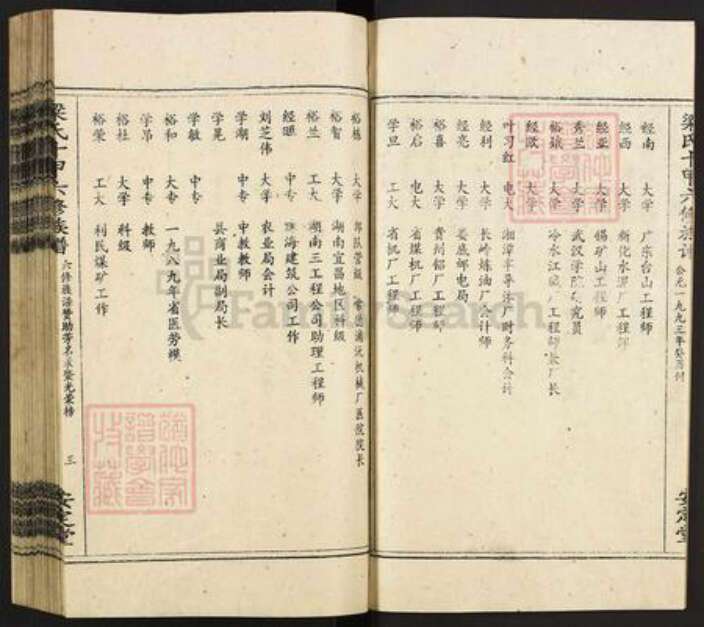 梁氏十甲六修族谱 公元一九九三年癸酉
经南 大学 广东台山工程师
经西 大学 新化水泥厂工程师
经亚 大学 锡矿山工程师
秀兰 大学 武汉学院研究员
裕娥 大学 冷水江 厂工程师 厂长
经欧 大学
叶习红 电大 湘潭半导体厂财务科会计
经利 大学 长岭炼油厂会计师
经亮 大学 娄底邮电局
裕喜 大学 贵州铝厂工程师
裕启 电大 省煤机厂工程师
学旦 工大 省机厂工程师
裕栋 大学 部队营级 常德浦沅机械厂医院院长
裕智 大学 湖南宜昌地区科级
裕兰 工大 湖南三工程公司助理工程师
经颐 中专 珠海建筑公司工作
刘芝伟 大学 农业局会计
学湖 中专 中教教师
学晃 县商业局副局长
学敏 中专
裕和 大专 一九八九年省医劳模
学昂 中专 教师
裕柱 大学 科级
裕荣 工大 利民煤矿工作
梁氏十甲六修族谱 六修族谱赞助芳名录暨光荣榜 三 安定堂
安定堂
FamilySearch